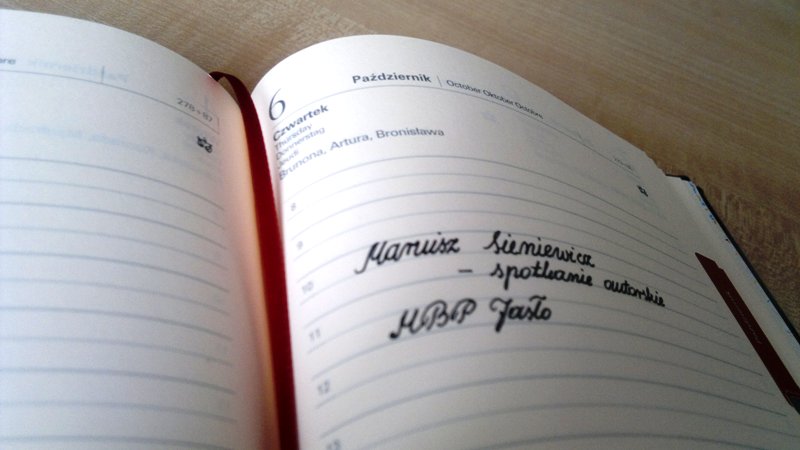 278+87
6
Październik | October Oktober Octobre
Czwartek
Thursday
Donnerstag
Jeudi
Brunona, Artura, Bronisława
8
9
Mariusz Sieniewicz
- spotkanie autorskie
10
MBP Jasło
11
12
13